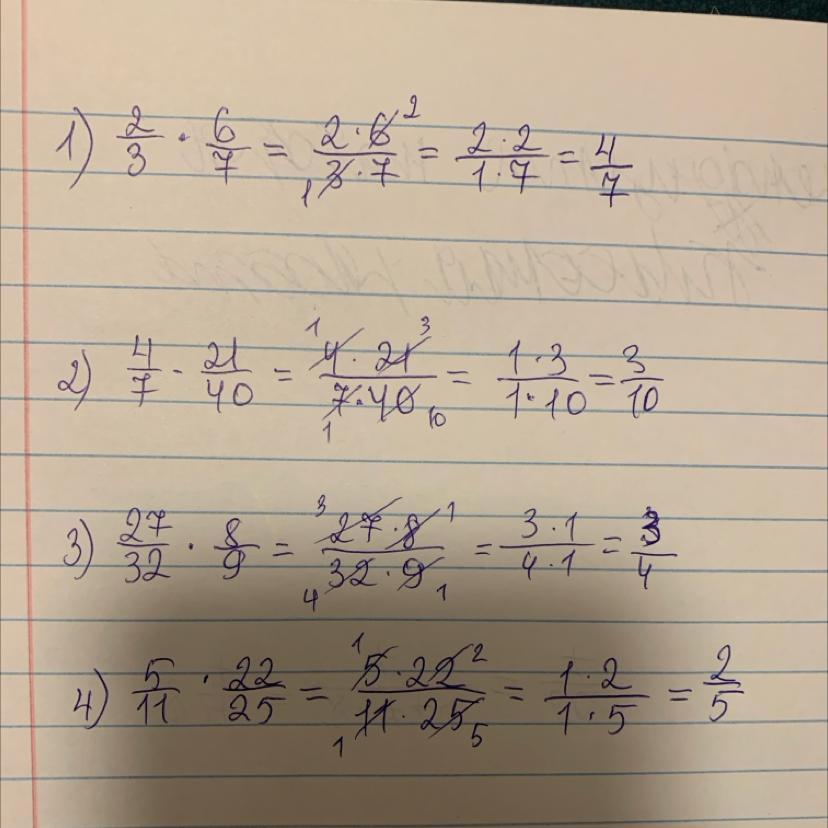 1) 2/3 · 6/7 = 2·6²/₁3·7 = 2·2/1·7 = 4/7
2) 4/7 · 21/40 = ¹4·21³/₁7·40₁₀ = 1·3/1·10 = 3/10
3) 27/32 · 8/9 = ³27·8¹/₄32·9₁ = 3·1/4·1 = 3/4
4) 5/11 · 22/25 = ¹5·22²/₁11·25₅ = 1·2/1·5 = 2/5